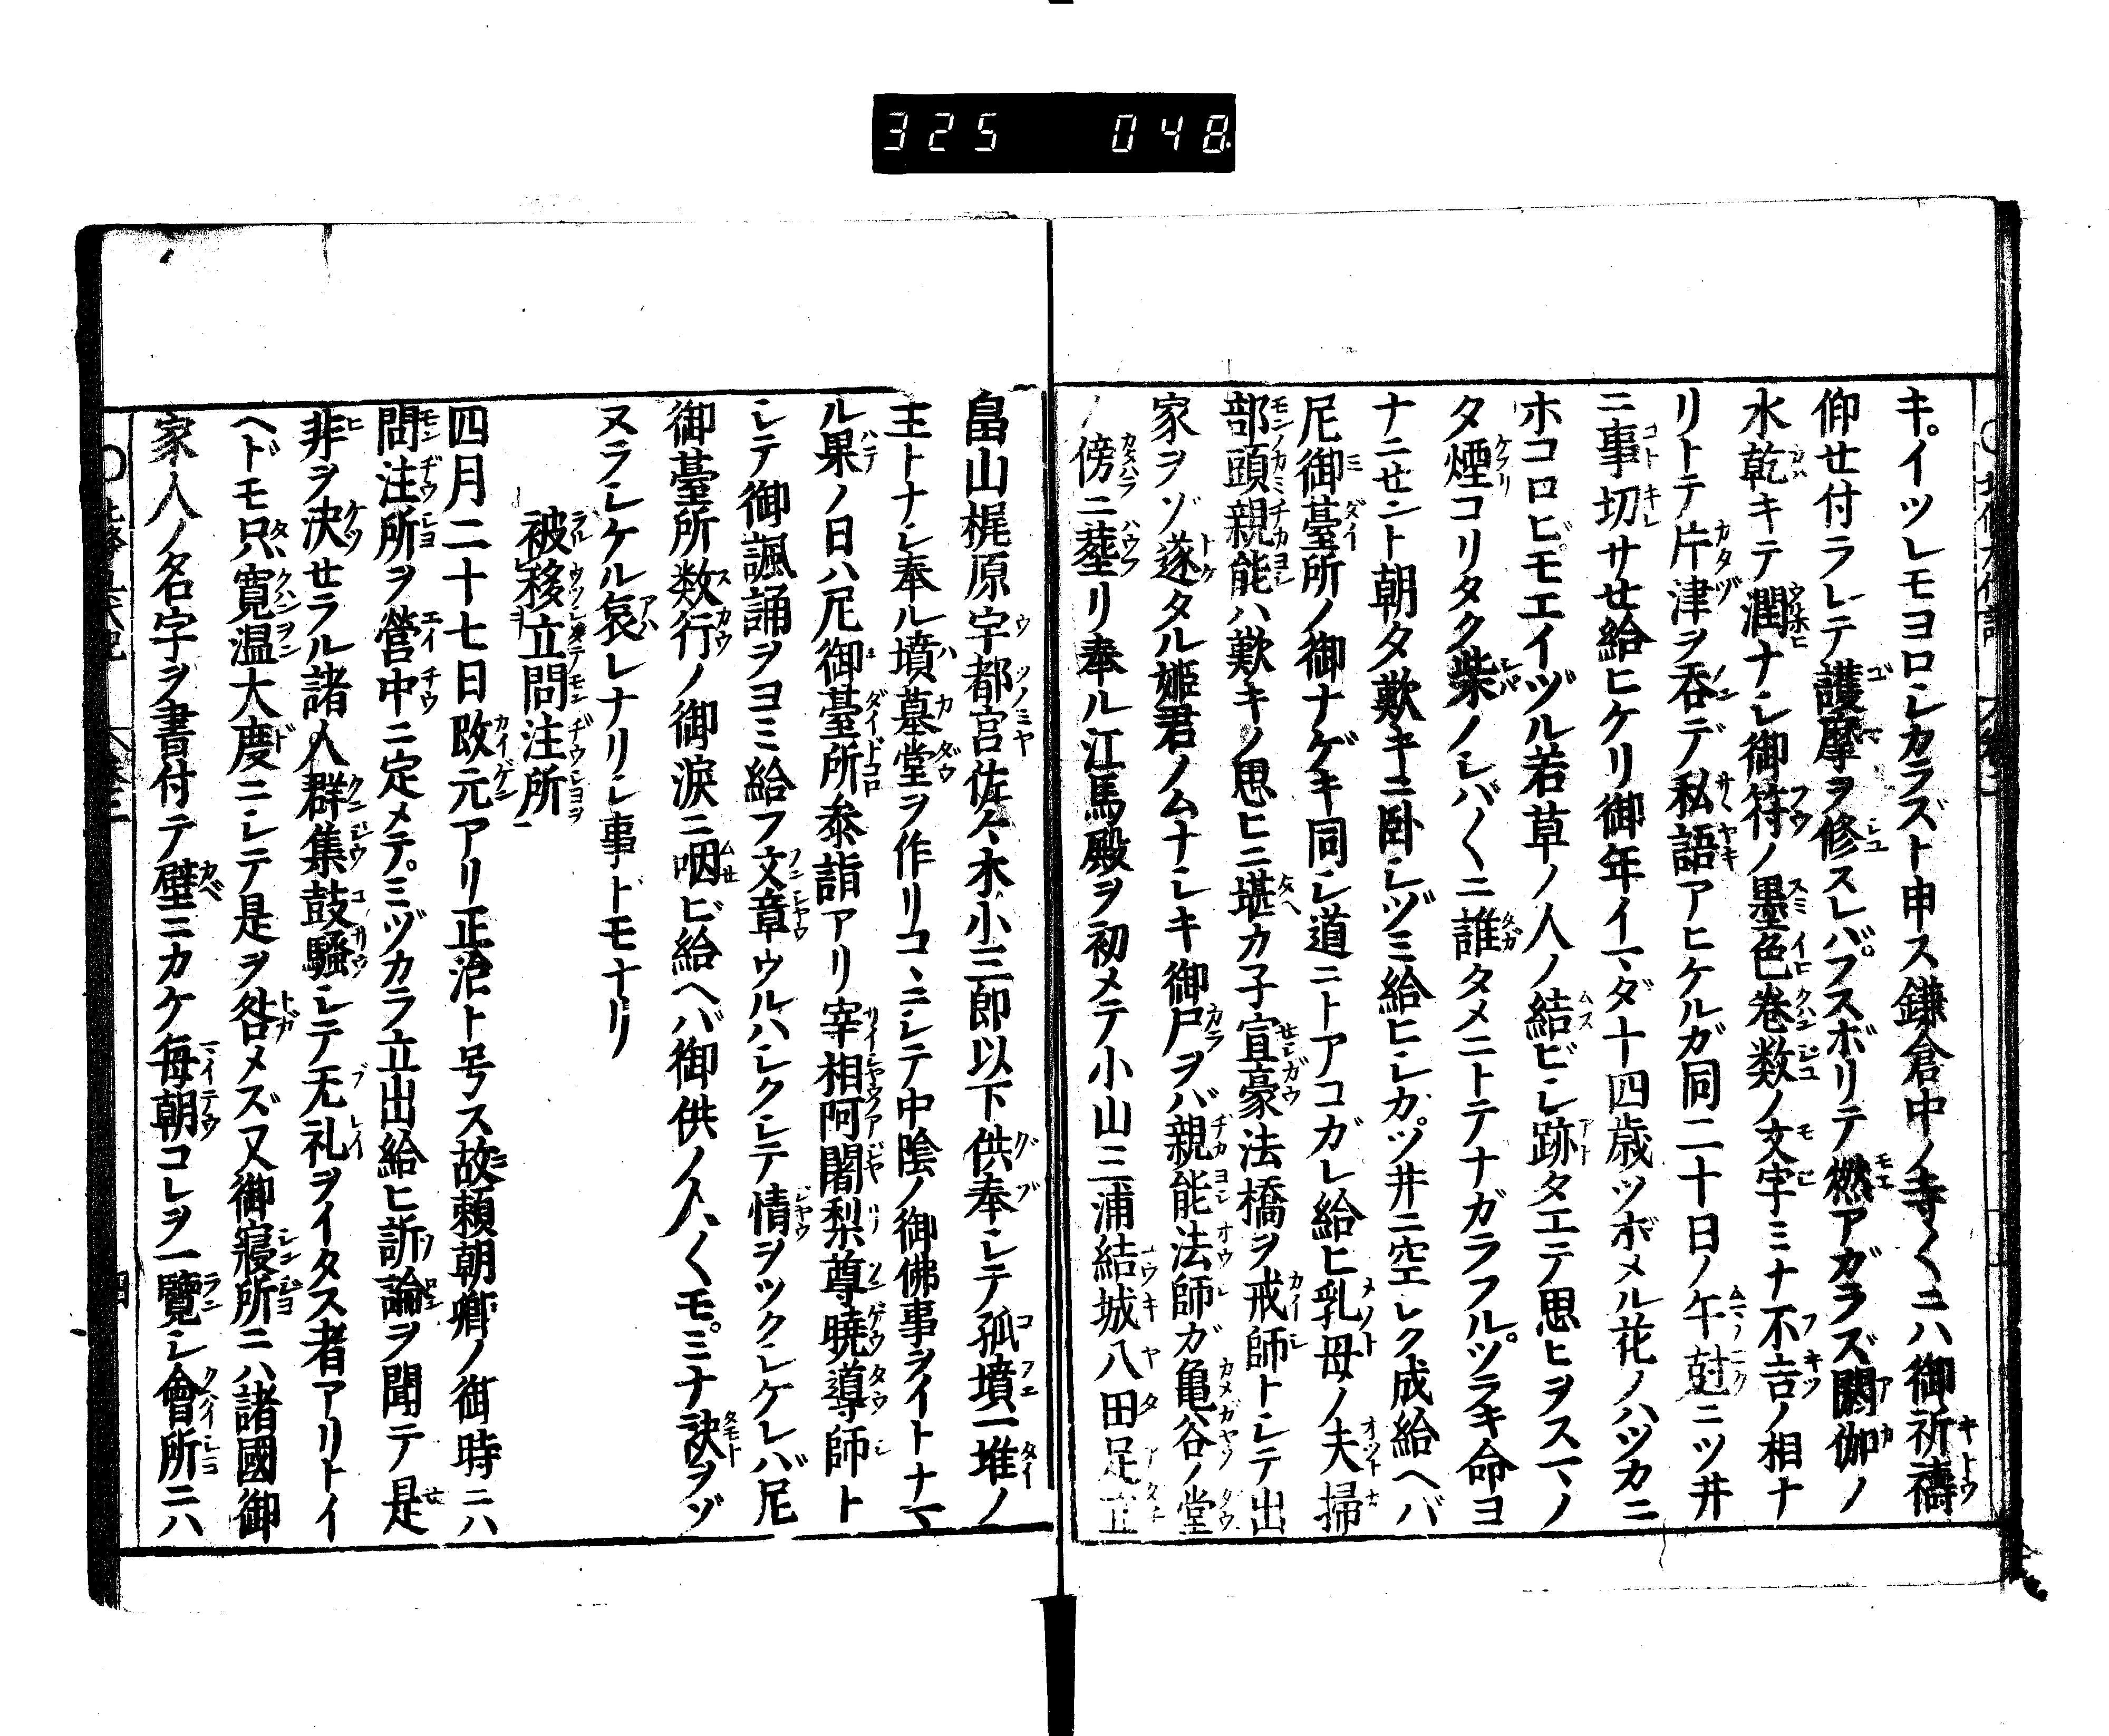 325 048
キ。イツレモヨロシカラズト申ス鎌倉中ノ寺〱ニハ御祈禱
仰セ付ラレテ護摩ヲ修スレバ。フスボリテ燃アガラズ閼伽ノ
水乾キテ潤ナシ御符ノ墨色卷数ノ文字ミナ不吉ノ相ナ
リトテ片津ヲ呑デ私語アヒケルガ同二十日ノ午尅ニツ井
ニ事切サせ給ヒケリ御年イマダ十四歳ツボメル花ノハツカニ
ホコロビモエイヅル若草ノ人ノ結ビシ跡タエテ思ヒヲスマノ
タ煙コリタク柴ノシバ〱ニ誰タメニトテナガラフル。ツラキ命ヨ
ナニせント朝タ歎キニ卧シヅミ給ヒシカ。ツ井ニ空シク成給ヘバ
尼御臺所ノ御ナゲキ同シ道ニトアコガレ給ヒ乳母ノ夫掃
部頭親能ハ歎キノ思ヒニ堪カ子宣豪法橋ヲ戒師トシテ出
家ヲゾ遂タル姫君ノムナシキ御尸ヲバ親能法師ガ亀谷ノ堂
ノ傍ニ葬リ奉ル江馬殿ヲ初メテ小山三浦結城八田足立
畠山梶原宇都宮佐々木小三郎以下供奉シテ孤墳一堆ノ
主トナシ奉ル墳墓堂ヲ作リコヽニシテ中陰ノ御佛事ヲイトナマ
ル果ノ日ハ尼御臺所参詣アリ宰相阿闍梨尊曉導師ト
シテ御諷誦ヲヨミ給フ文章ウルハシクシテ情ヲツクシケレバ尼
御臺所数行ノ御涙ニ咽ビ給ヘバ御供ノ人〱モ。ミナ袂ヲゾ
ヌラシケル哀レナリシ事ドモナリ
被移立問注所
四月二十七日改元アリ正治ト号ス故頼朝卿ノ御時ニハ
問注所ヲ營中ニ定メテ。ミヅカラ立出給ヒ訴論ヲ聞テ是
非ヲ決せラル諸人群集鼓騒シテ无礼ヲイタス者アリトイ
ヘドモ只寛温大度ニシテ是ヲ咎メズ又御寢所ニハ諸國御
家人ノ名字ヲ書付テ壁ニカケ毎朝コレヲ一覽シ會所ニハ